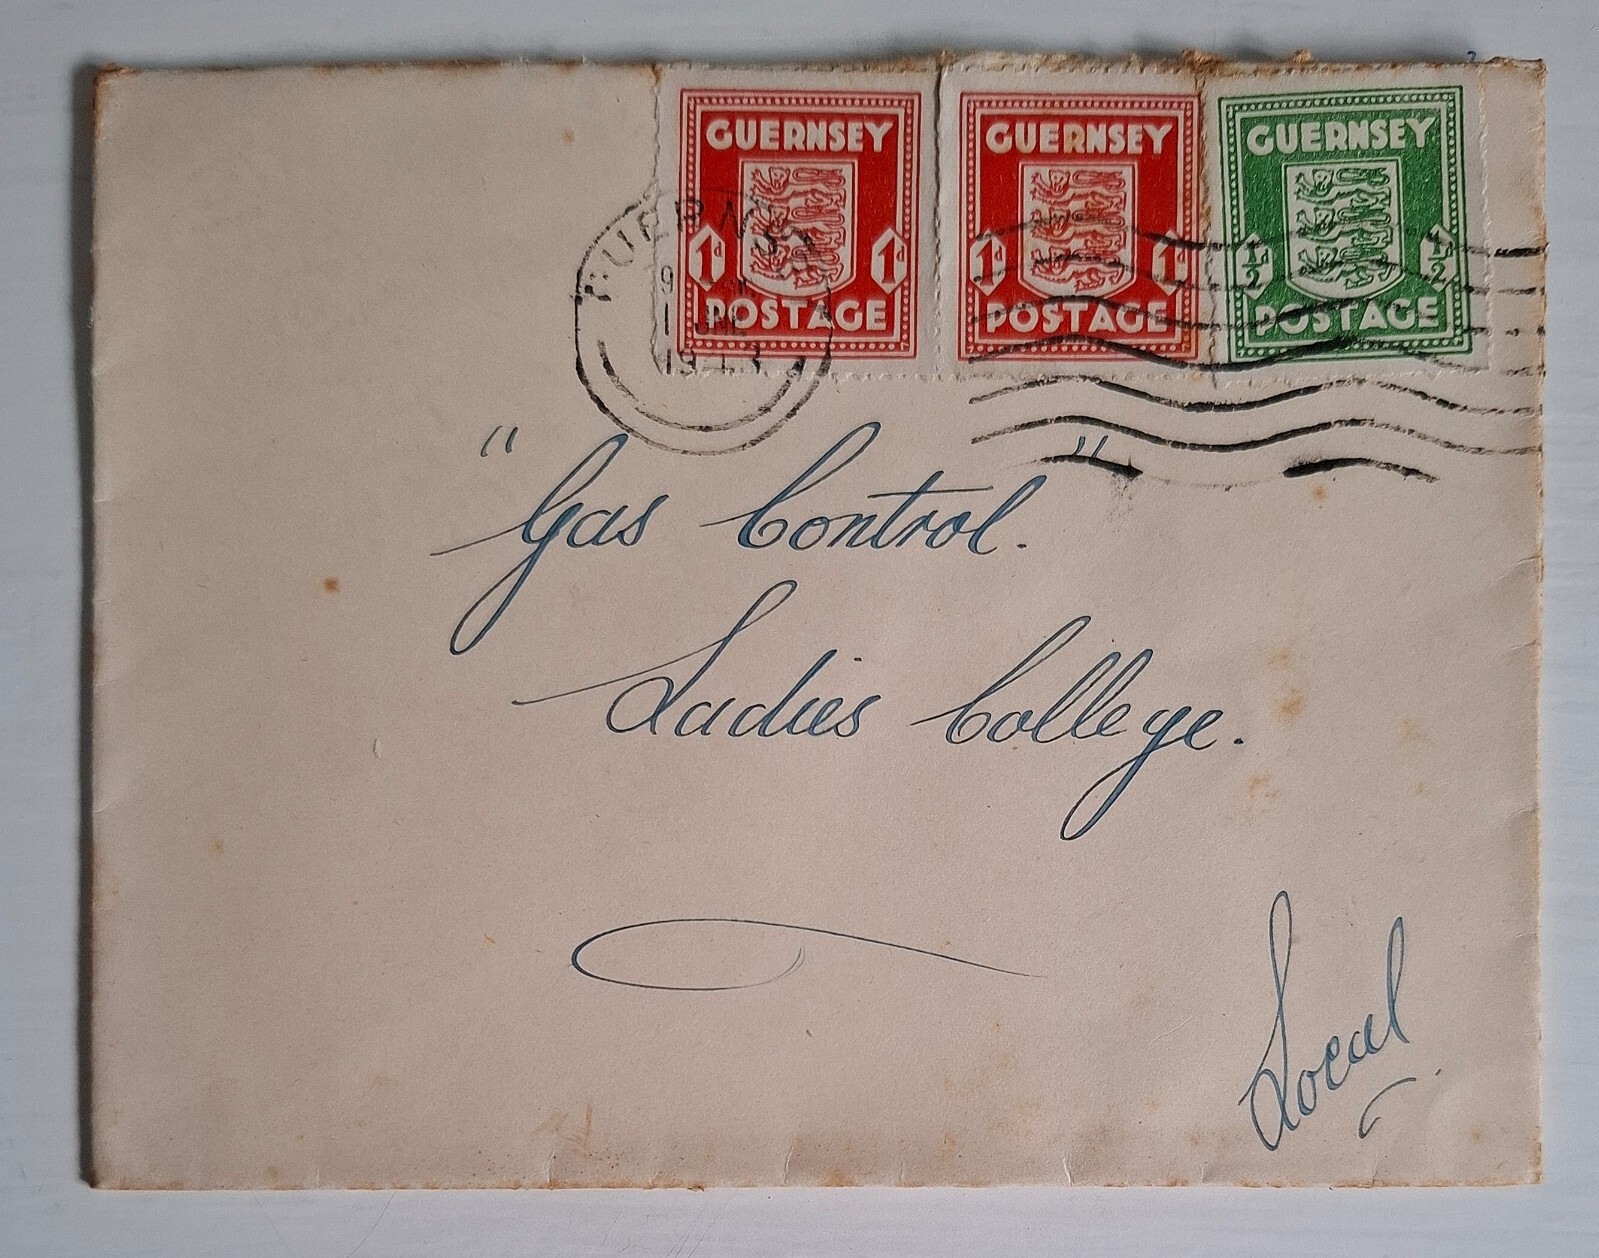 GUERNSEY
1d 1d
POSTAGE
GUERNSEY
1d 1d
POSTAGE
GUERNSEY
½d ½d
POSTAGE
1 JNE
1943
"Gas Control."
Ladies College.
Local